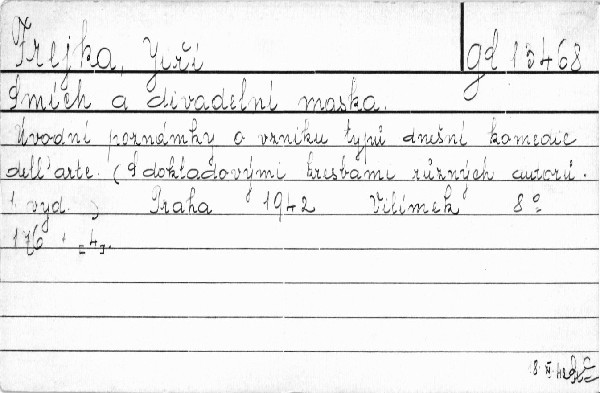 Frejka, Jiří gd 13468
Smích a divadelní maska.
Úvodní poznámky o vzniku typů dnešní komedie
dell'arte. (S dokladovými kresbami různých autorů.
1. vyd.) Praha 1942 Vilímek 8°
176 + [4].